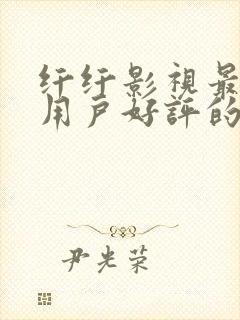 纤纤影視最
用户好評的
尹光荣